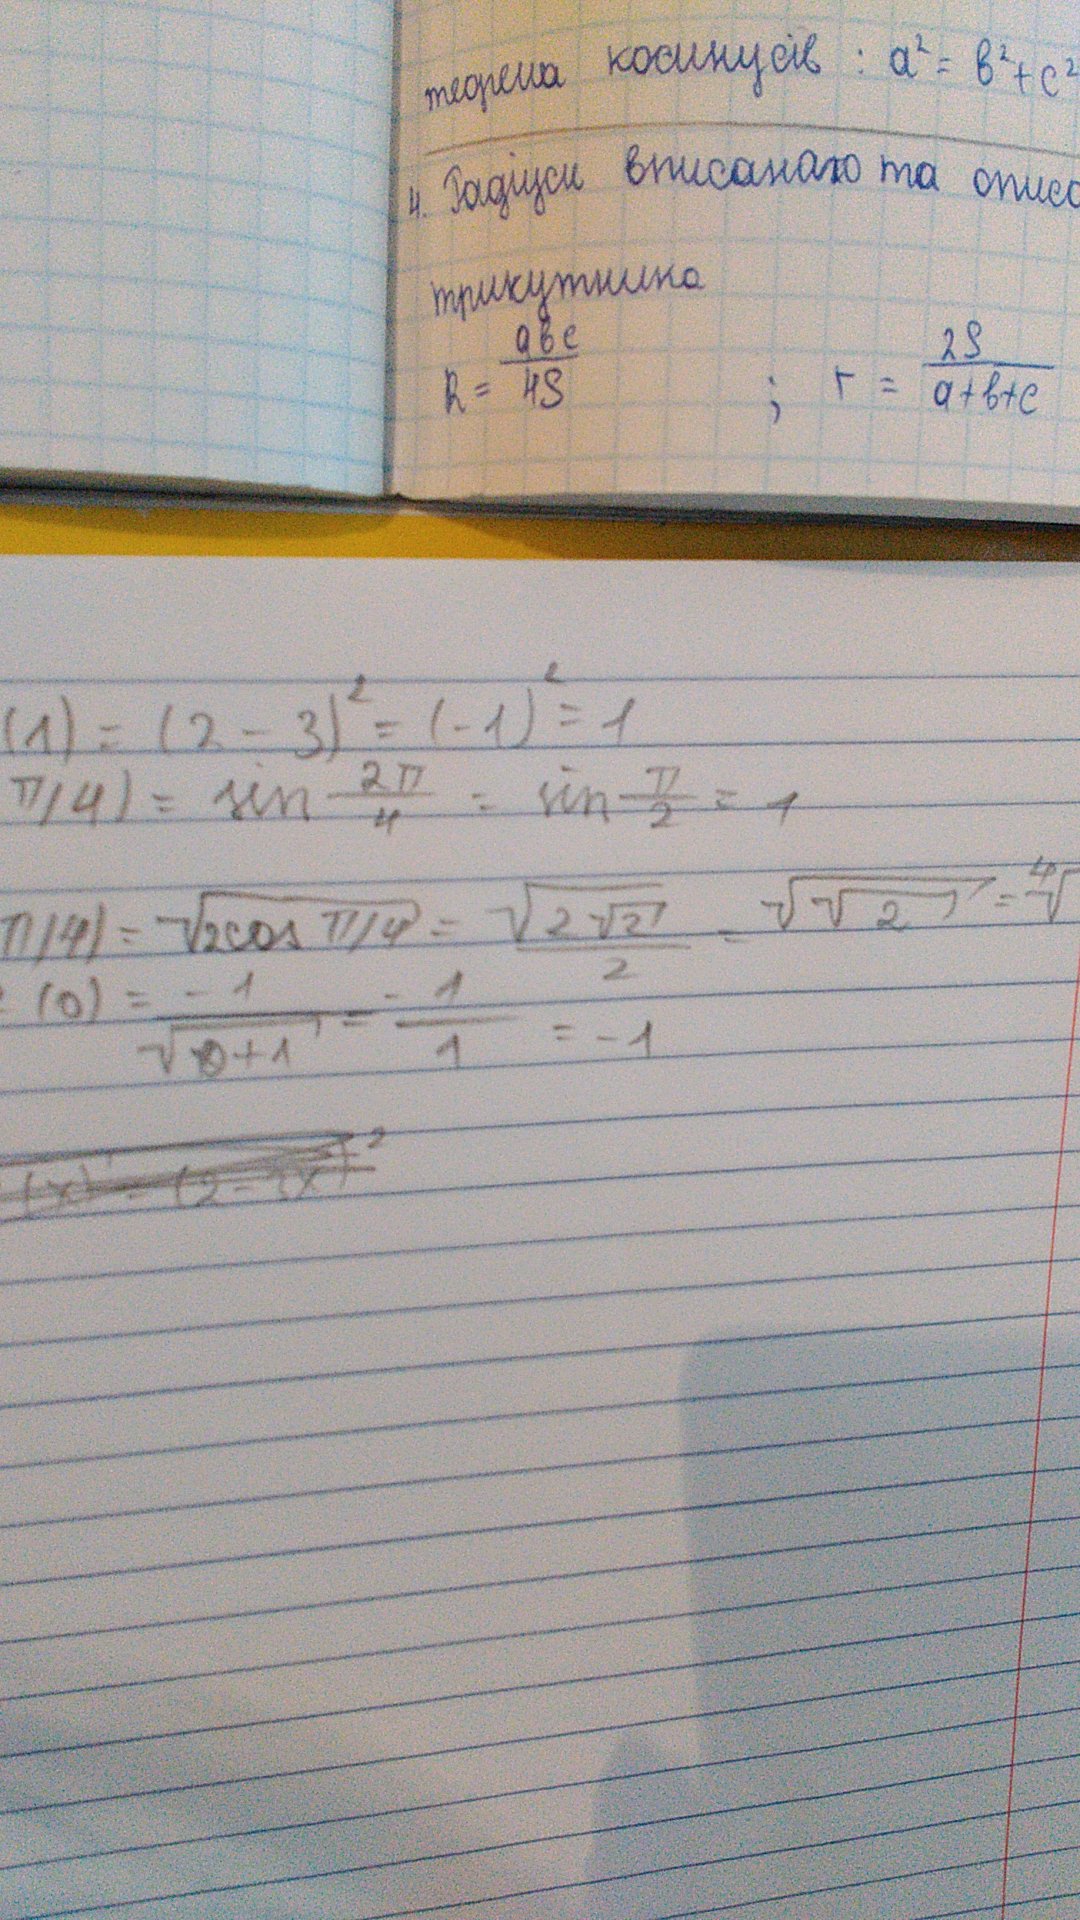 теорема косинусів : a² = b² + c²
4. Радіуси вписаного та описа
трикутника
R = abc / 4S ; r = 2S / a+b+c
(1) = (2 - 3)² = (-1)² = 1
π/4) = sin 2π/4 = sin π/2 = 1
π/4) = √(2cos π/4) = √(2√2)/2 = √(√2) = ⁴√
(0) = -1/√(0+1) = -1/1 = -1